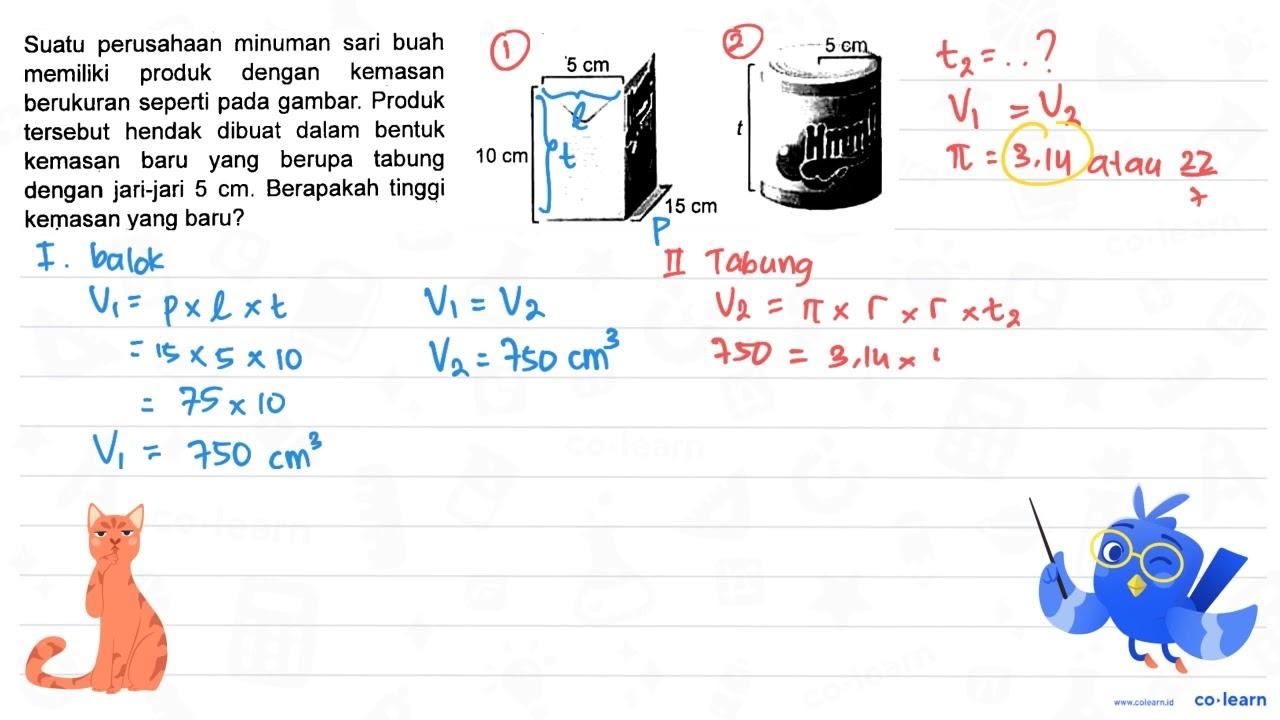 Suatu perusahaan minuman sari buah
memiliki produk dengan kemasan
berukuran seperti pada gambar. Produk
tersebut hendak dibuat dalam bentuk
kemasan baru yang berupa tabung
dengan jari-jari 5 cm. Berapakah tinggi
kemasan yang baru?
1
5 cm
l
10 cm
t
15 cm
p
2
5 cm
t
t₂ = ..?
V₁ = V₂
π = 3.14 atau 22/7
I. balok
V₁ = p × l × t
= 15 × 5 × 10
= 75 × 10
V₁ = 750 cm³
V₁ = V₂
V₂ = 750 cm³
II Tabung
V₂ = π × r × r × t₂
750 = 3,14 ×
co·learn
co·learn
co·learn
co·learn
www.colearn.id co·learn